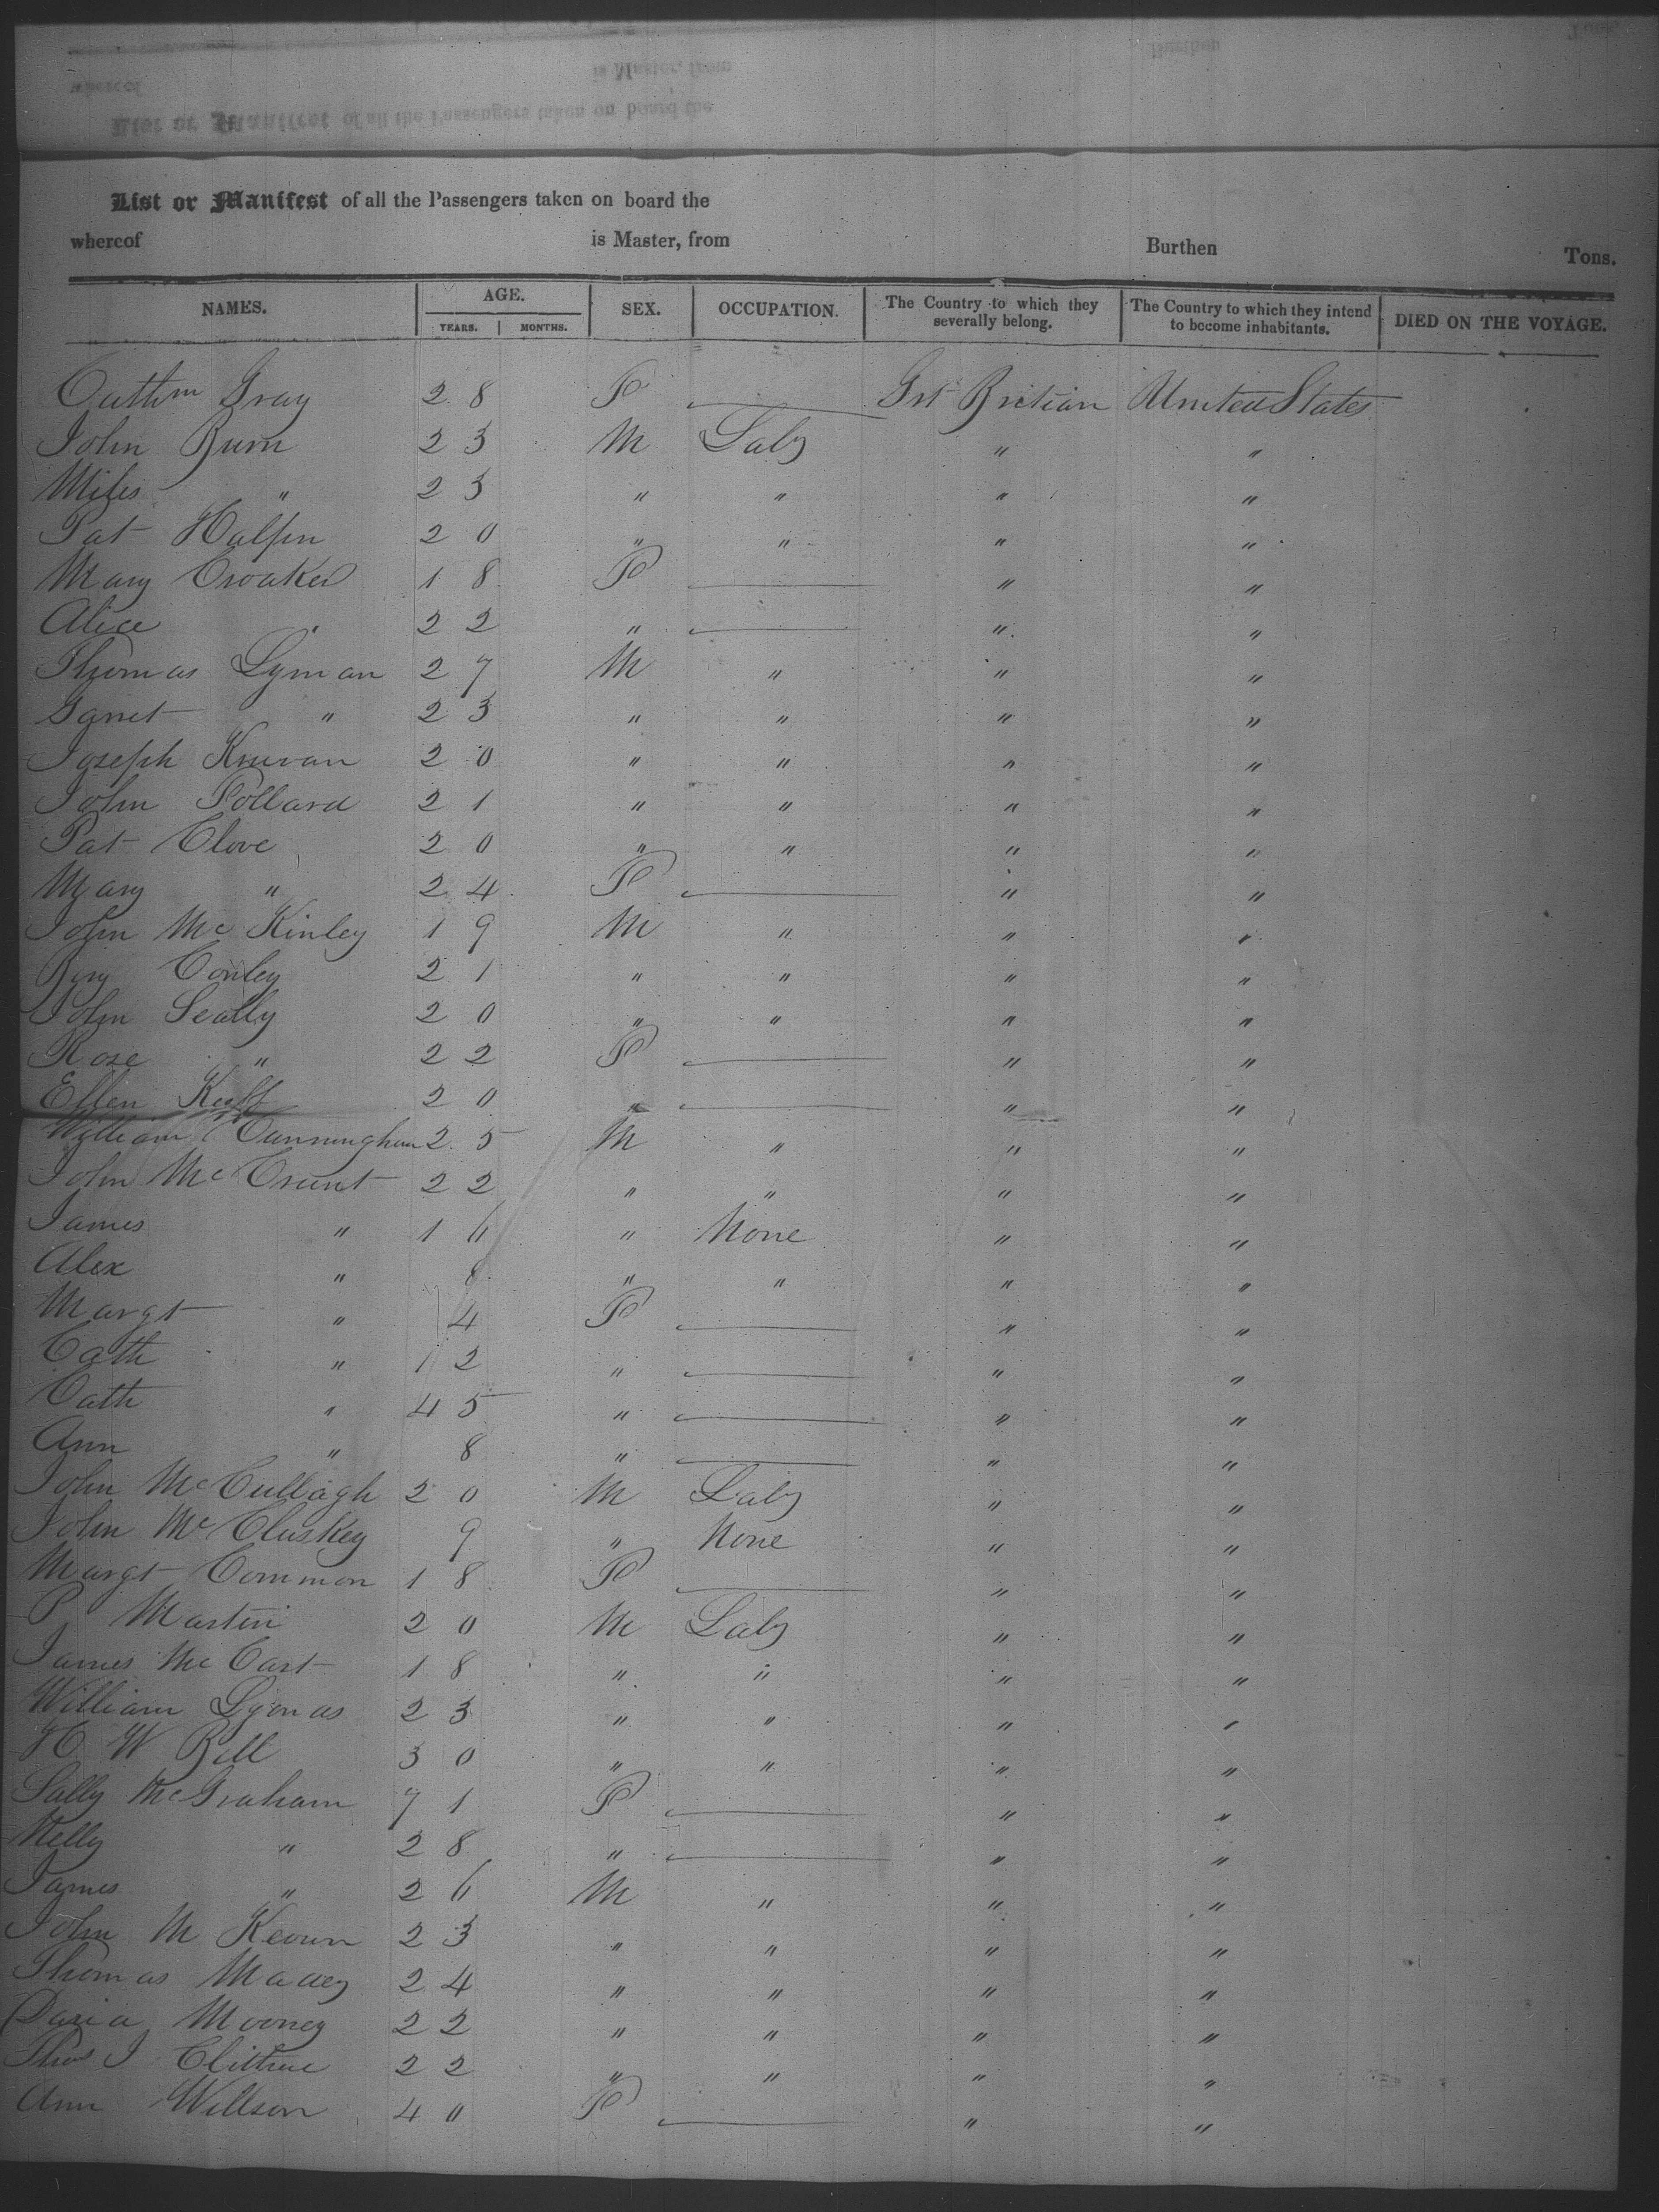 List or Manifest of all the Passengers taken on board the
whereof is Master, from Burthen Tons.
NAMES. AGE. SEX. OCCUPATION. The Country to which they severally belong. The Country to which they intend to become inhabitants. DIED ON THE VOYAGE.
YEARS. MONTHS.
Gray 28 F Grt Britian United States
John Burn 23 M Labr " "
Miles " 23 " " " "
Pat Halpin 20 " " " "
Mary Croaker 18 F " "
Alice " 22 " " "
Thomas Lyman 27 M " " "
Janet " 23 " " " "
Joseph 20 " " " "
John Pollard 21 " " " "
Pat Clove 20 " " " "
Mary " 24 F " "
John Mc Kinley 19 M " " "
Conley 21 " " " "
John Seally 20 " " " "
Rose " 22 F " "
Ellen 20 " " "
William Cunningham 25 M " " "
John Mc 22 " " " "
James " 16 " None " "
Alex " 8 " " " "
Margt " 4 F " "
Cath " 12 " " "
Cath " 45 " " "
Ann " 8 " " "
John McCullagh 20 M Labr " "
John McCluskey 9 " None " "
Margt Common 18 F " "
P Martin 20 M Labr " "
James Mc Cart 18 " " " "
William Lyonas 23 " " " "
H W Bell 30 " " " "
Sally McGraham 71 F " "
Nelly " 28 " " "
James " 26 M " " "
John M Keown 23 " " " "
Thomas 24 " " " "
Mooney 22 " " " "
Thos J 22 " " " "
Ann Willson 40 F " "